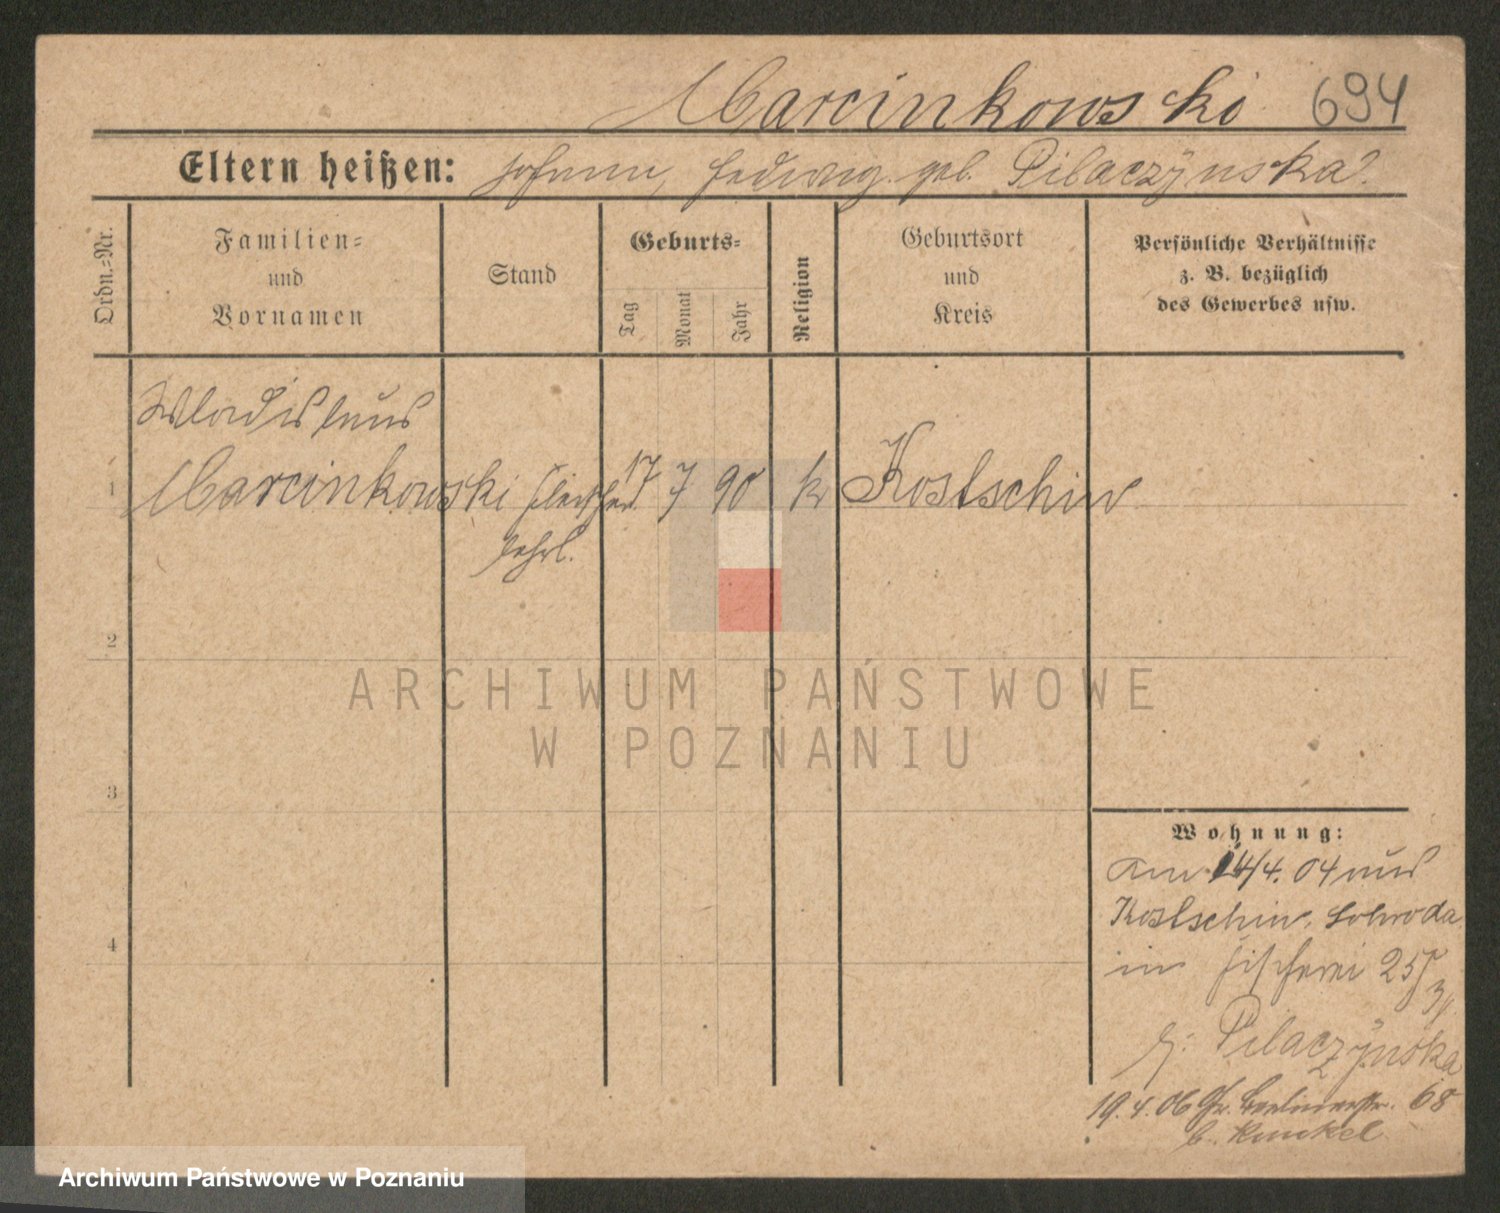 Marcinkowski 694
Eltern heißen: Johann, Hedwig geb. Pilaczÿnska
Ordn.-Nr.
Familien-
und
Vornamen
Stand
Geburts-
Tag
Monat
Jahr
Religion
Geburtsort
und
Kreis
Persönliche Verhältnisse
z. B. bezüglich
des Gewerbes usw.
Wladislaus
1 Marcinkowski Fleischer 17 7 90 k Kostschin
lehrl.
2
ARCHIWUM PAŃSTWOWE
W POZNANIU
3
Wohnung:
Am 14/4. 04 aus
Kostschin, Schroda
4
in Fischerei 25
b: Pilaczÿnska
19.4.06 Gr. Berlinerstr. 68
b. Kunkel
Archiwum Państwowe w Poznaniu